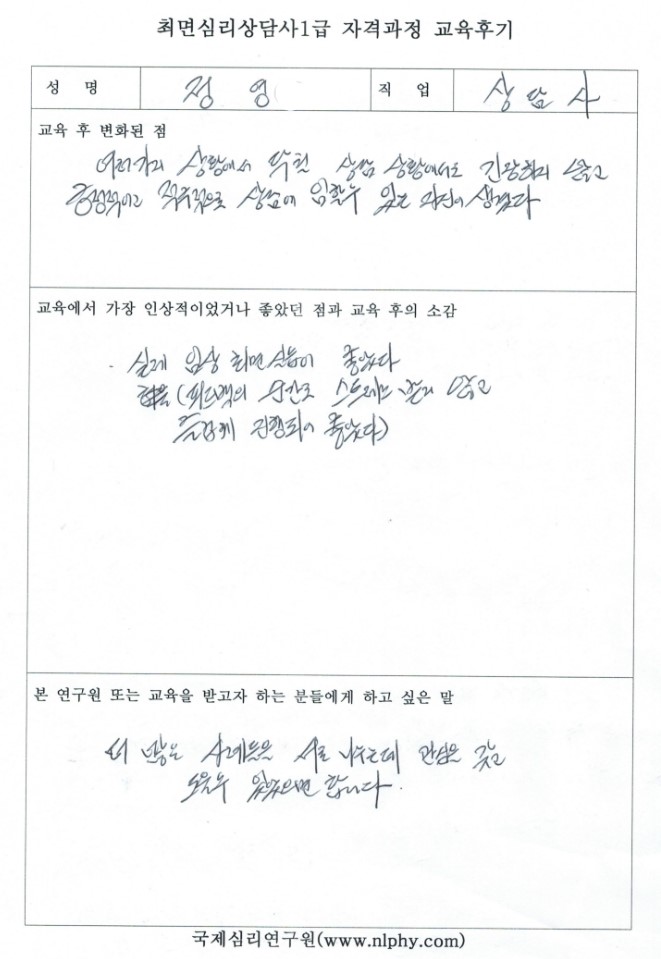 최면심리상담사1급 자격과정 교육후기
성 명 정 영 직 업 상 담 사
교육 후 변화된 점
여러가지 상황에서 닥친 상담 상황에서도 긴장하지 않고
긍정적이고 적극적으로 상담에 임할수 있는 자신이 생겼다
교육에서 가장 인상적이었거나 좋았던 점과 교육 후의 소감
· 실제 임상 최면실습이 좋았다
(피드백의 스트레스 받지 않고
즐겁게 진행되어 좋았다)
본 연구원 또는 교육을 받고자 하는 분들에게 하고 싶은 말
더 많은 사례들을 서로 나누는데 관심을 갖고
모을수 있었으면 합니다.
국제심리연구원(www.nlphy.com)